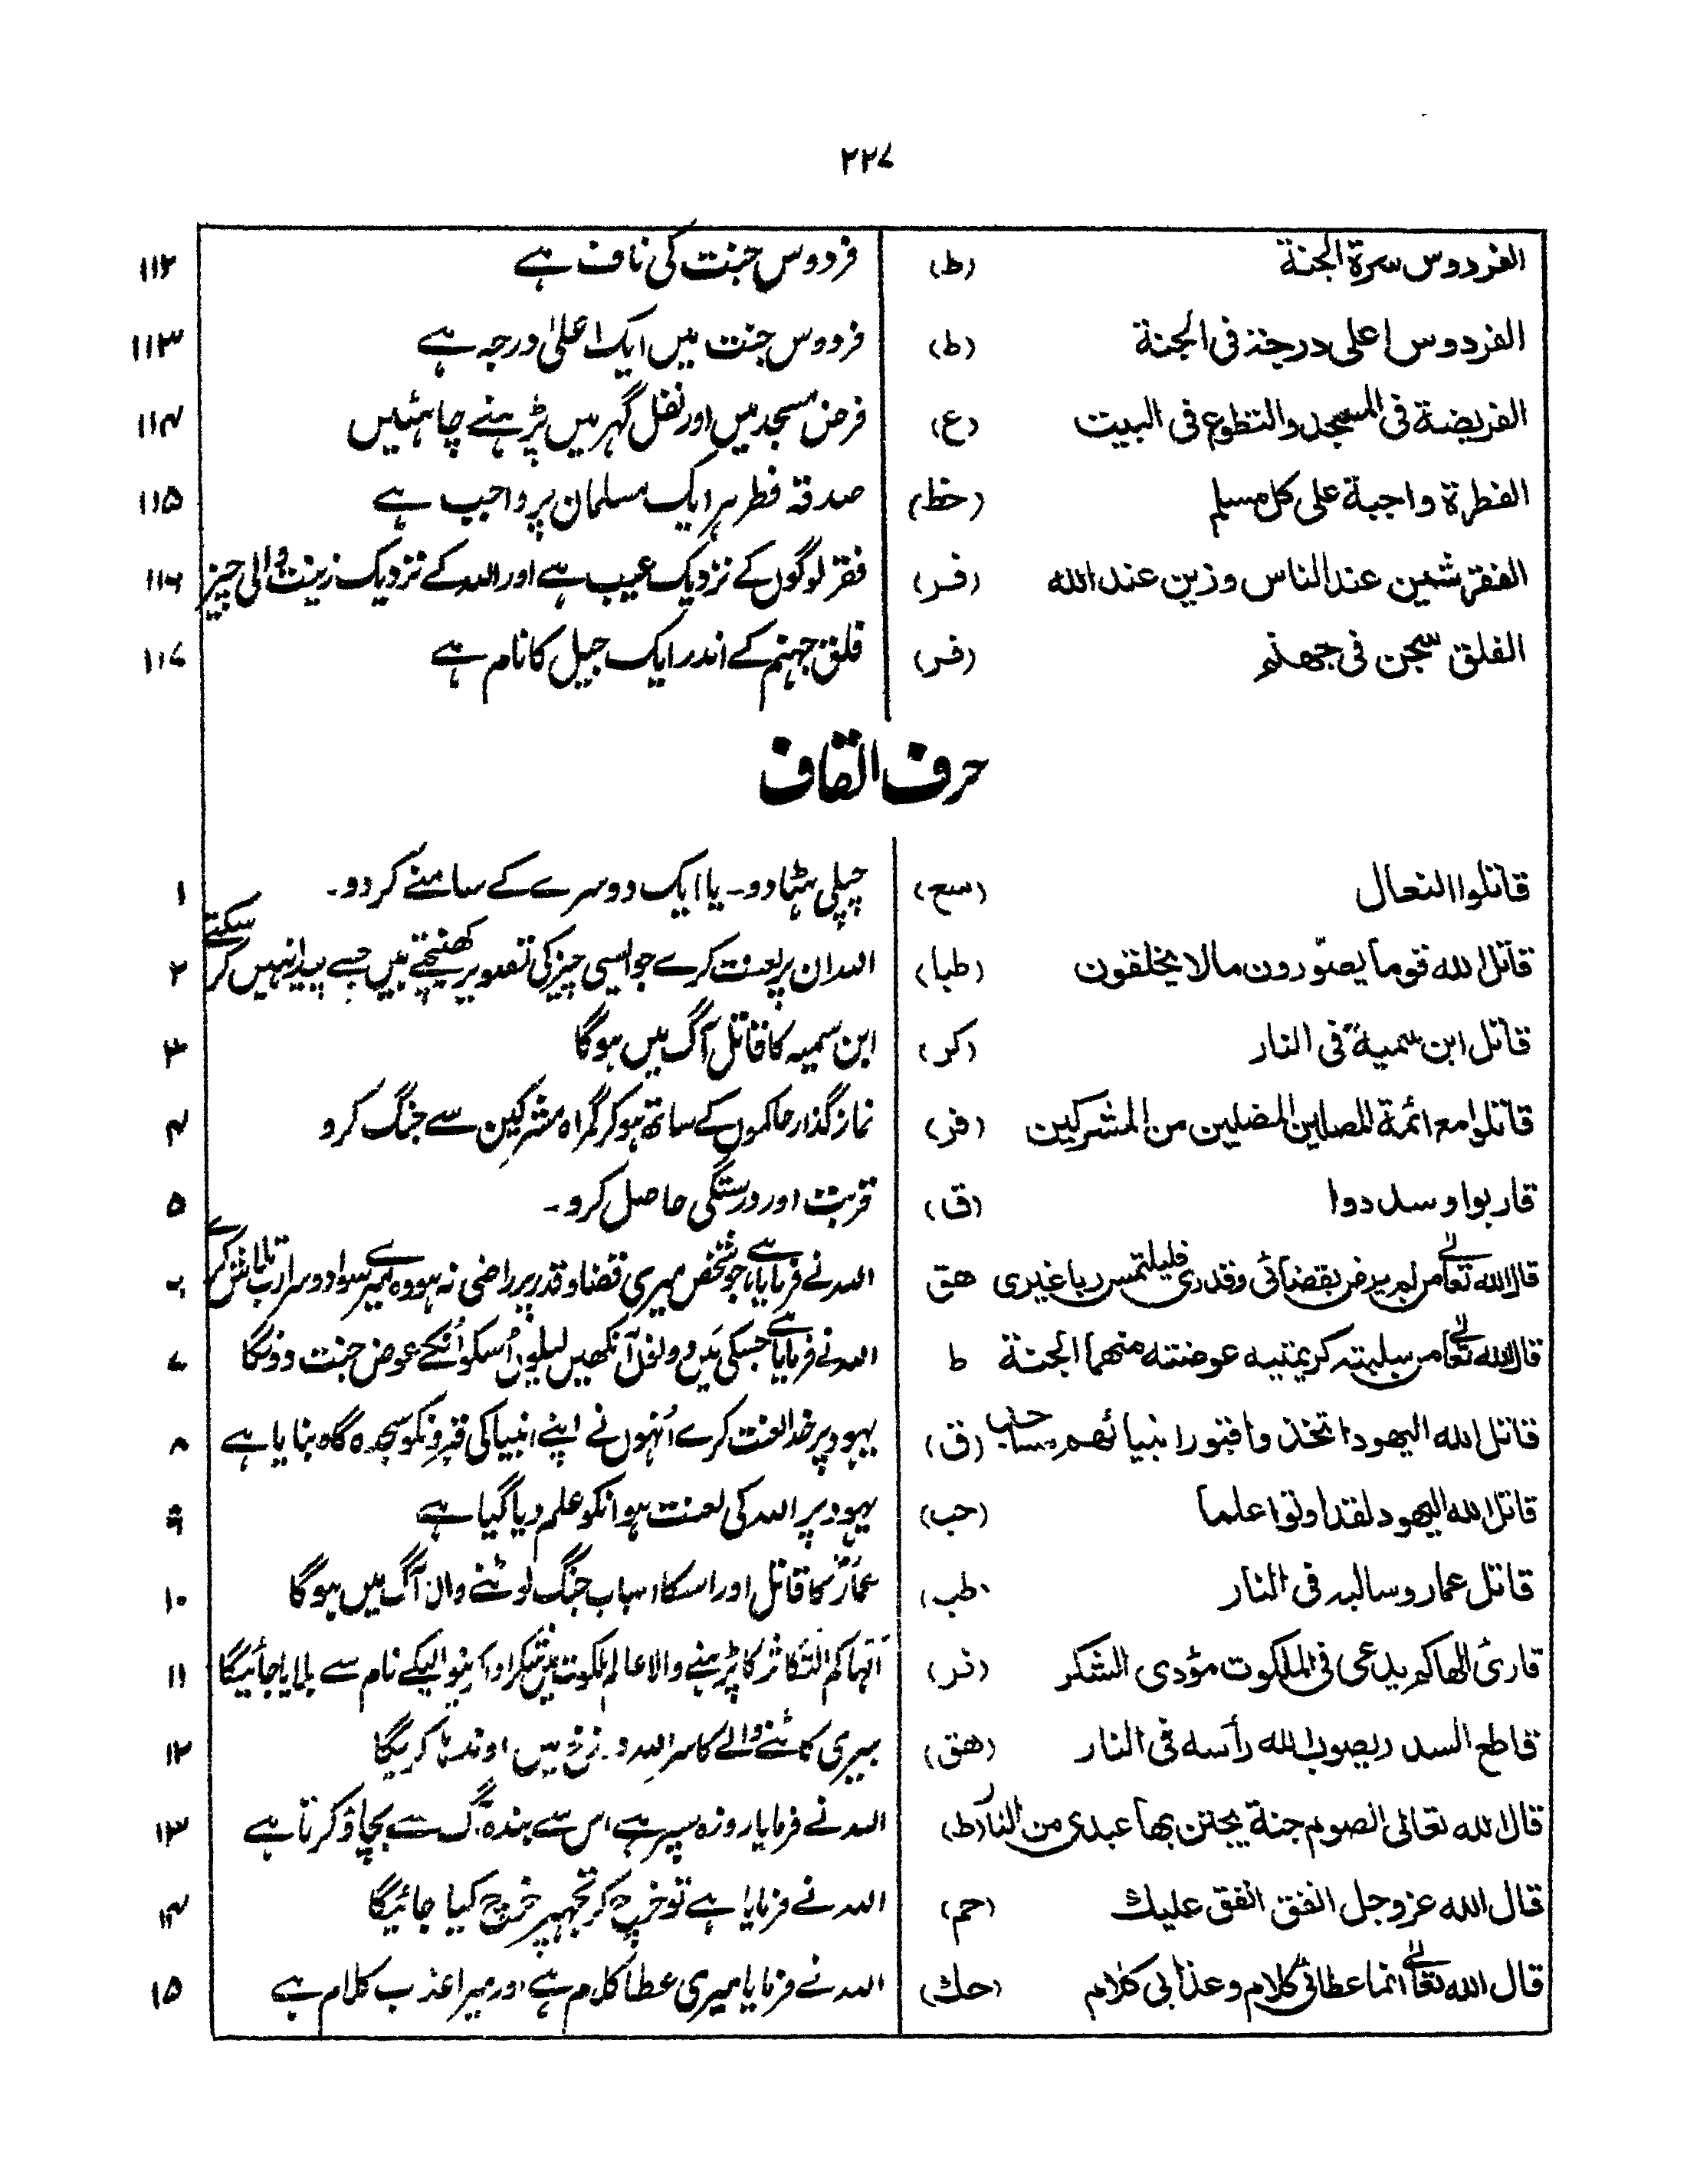 ۲۲۷
الفردوس سرة الجنة (ط) فردوس جنت کی ناف ہے ۱۱۲
الفردوس اعلی درجة فی الجنة (ط) فردوس جنت میں ایک اعلیٰ درجہ ہے ۱۱۳
الفریضة فی المسجد والتطوع فی البیت (ع) فرض مسجد میں اور نفل گہر میں پڑہنے چاہئیں ۱۱۴
الفطرة واجبة علی کل مسلم (خط) صدقہ فطر ہر ایک مسلمان پر واجب ہے ۱۱۵
الفقر شین عند الناس وزین عند الله (فر) فقر لوگوں کے نزدیک عیب ہے اور اللہ کے نزدیک زینت والی چیز ۱۱۶
الفلق سجن فی جهنم (فر) فلق جہنم کے اندر ایک جیل کا نام ہے ۱۱۷
حرف القاف
قاتلوا النعال (سع) چپلی ہٹا دو۔ یا ایک دوسرے کے سامنے کر دو۔ ۱
قاتل الله قوما یصوّرون مالا یخلقون (طیا) اللہ ان پر لعنت کرے جو ایسی چیز کی تصویر کھنچتے ہیں جسے پیدا نہیں کر سکتے ۲
قاتل ابن سمیة فی النار (کر) ابن سمیہ کا قاتل آگ میں ہوگا ۳
قاتلوا مع ائمة المصلین المضلین من المشرکین (فر) نماز گذار حاکموں کے ساتھ ہو کر گمراہ مشرکین سے جنگ کرو ۴
قاربوا وسددوا (ق) قربت اور درستگی حاصل کرو۔ ۵
قال الله تعالے من لم یرض بقضائی وقدری فلیلتمس ربا غیری هق اللہ نے فرمایا ہے جو شخص میری قضا و قدر پر راضی نہ ہو وہ میرے سوا دوسرا رب تلاش کرے ۶
قال الله تعالے من سلبته کریمتیه عوضته منهما الجنة ط اللہ نے فرمایا ہے جسکی میں دونوں آنکھیں لیلوں اُسکو اُنکے عوض جنت دونگا ۷
قاتل الله الیهود اتخذوا قبور انبیائهم مساجد (ق) یہود پر خدا لعنت کرے اُنہوں نے اپنے انبیا کی قبرونکو سجدہ گاہ بنایا ہے ۸
قاتل الله الیهود لقد اوتوا علما (حب) یہود پر اللہ کی لعنت ہو انکو علم دیا گیا ہے ۹
قاتل عمار وسالبه فی النار (طب) عمارؓ کا قاتل اور اسکا اسباب جنگ لوٹنے والا آگ میں ہوگا ۱۰
قارئ الهاکم یدعی فی الملکوت مؤدی الشکر (فر) الہاکم التکاثر کا پڑہنے والا عالم ملکوت میں شکر ادا کرنیوالیکے نام سے بلایا جائیگا ۱۱
قاطع السدر یصوب الله رأسه فی النار (هق) بیری کاٹنے والے کا سر اللہ دوزخ میں اوندہا کریگا ۱۲
قال الله تعالی الصوم جنة یجتن بها عبدی من النار (ط) اللہ نے فرمایا روزہ سپر ہے اس سے بندہ آگ سے بچاؤ کرتا ہے ۱۳
قال الله عز وجل انفق انفق علیك (حم) اللہ نے فرمایا ہے تو خرچ کر تجہپر خرچ کیا جائیگا ۱۴
قال الله تعالے انما عطائی کلام وعذابی کلام (حك) اللہ نے فرمایا میری عطا کلام ہے اور میرا عذاب کلام ہے ۱۵